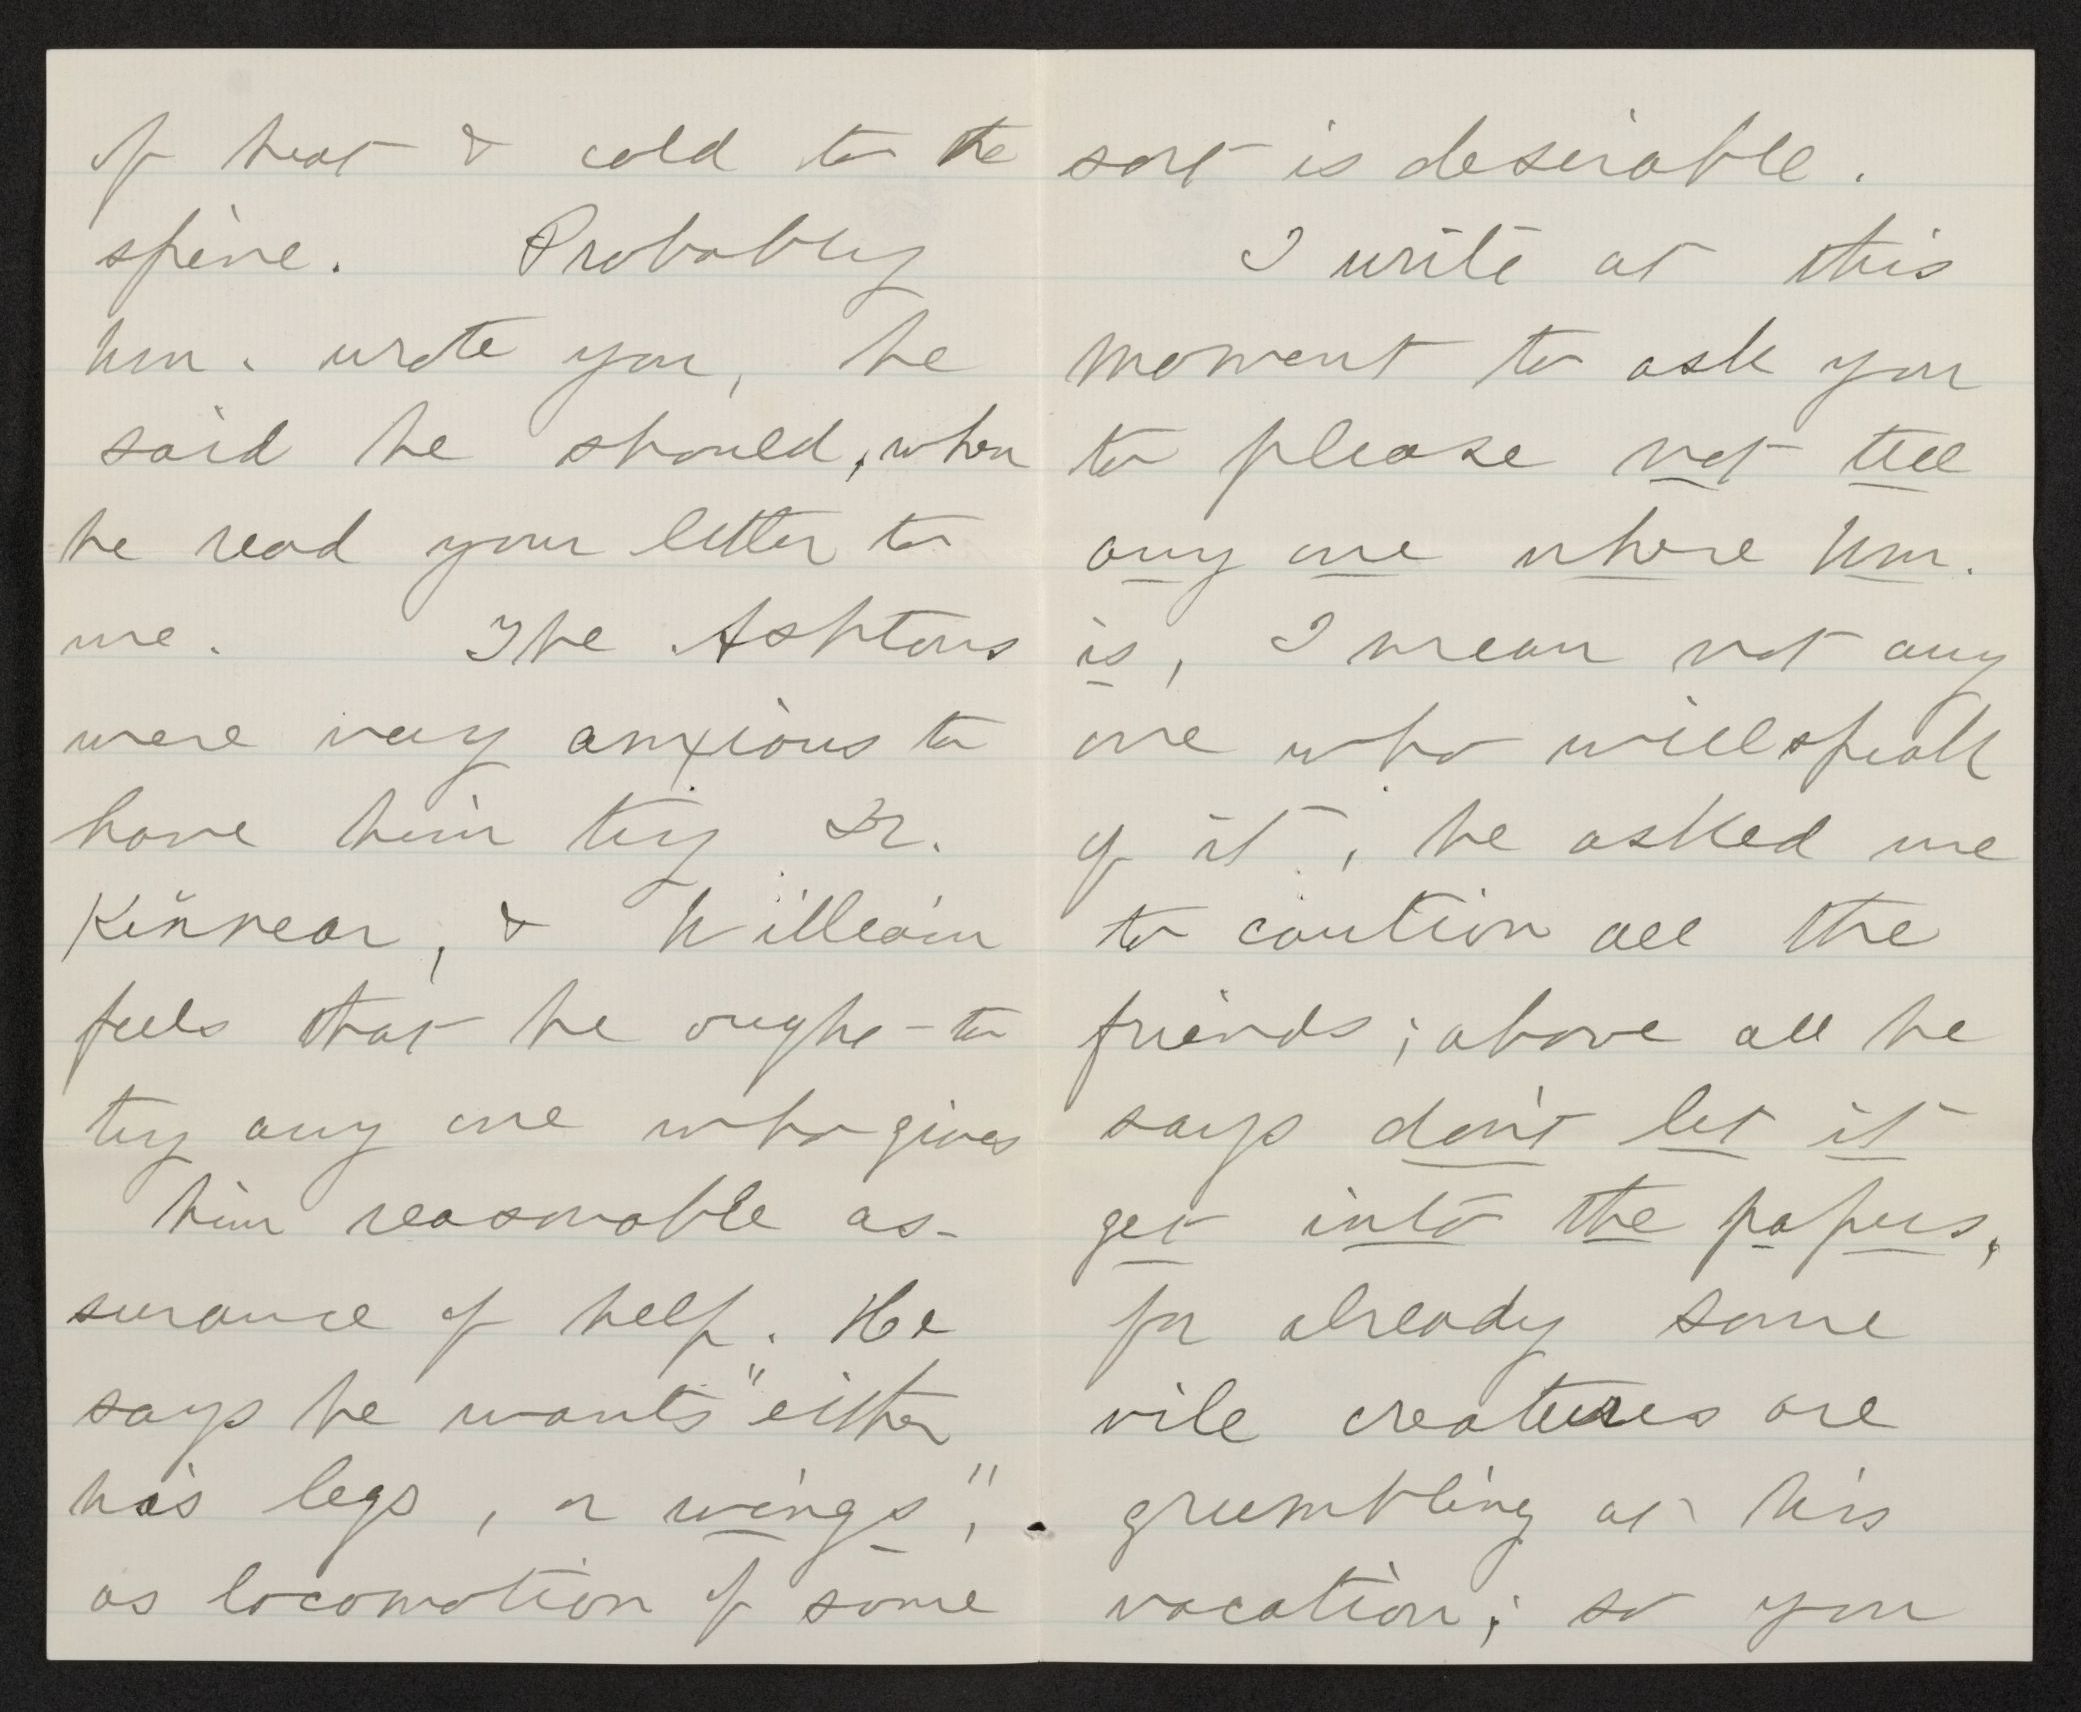 of heat & cold to the
spine. Probably
Wm. wrote you, he
said he should, when
he read your letter to
me. The Ashtons
were very anxious to
have him try Dr.
Kinnear, & William
feels that he ought to
try any one who gives
him reasonable as-
surance of help. He
says he wants "either
his legs, or wings",
as locomotion of some
sort is desirable.
I write at this
moment to ask you
to please not tell
any one where Wm.
is, I mean not any
one who will speak
of it, he asked me
to caution all the
friends; above all he
says don't let it
get into the papers,
for already some
vile creatures are
grumbling at his
vacation; so you